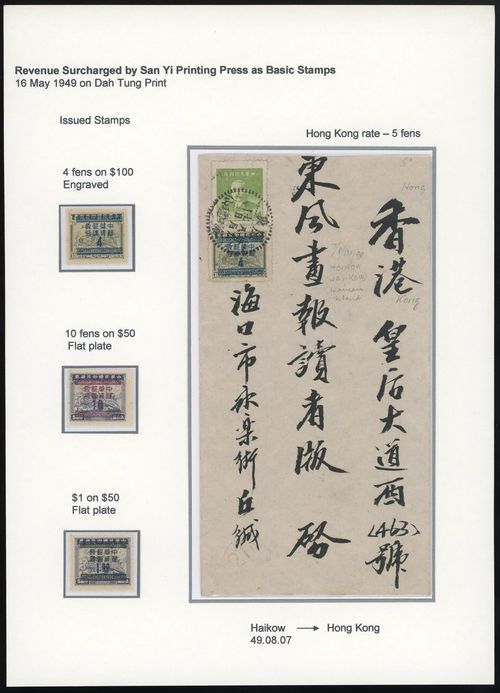 Revenue Surcharged by San Yi Printing Press as Basic Stamps
16 May 1949 on Dah Tung Print
Issued Stamps
Hong Kong rate – 5 fens
4 fens on $100
Engraved
4
10 fens on $50
Flat plate
10
$1 on $50
Flat plate
香港皇后大道西(463)號
東風畫報讀者版 啓
海口市永樂街丘緘
Hong
Kong
4
Haikow → Hong Kong
49.08.07